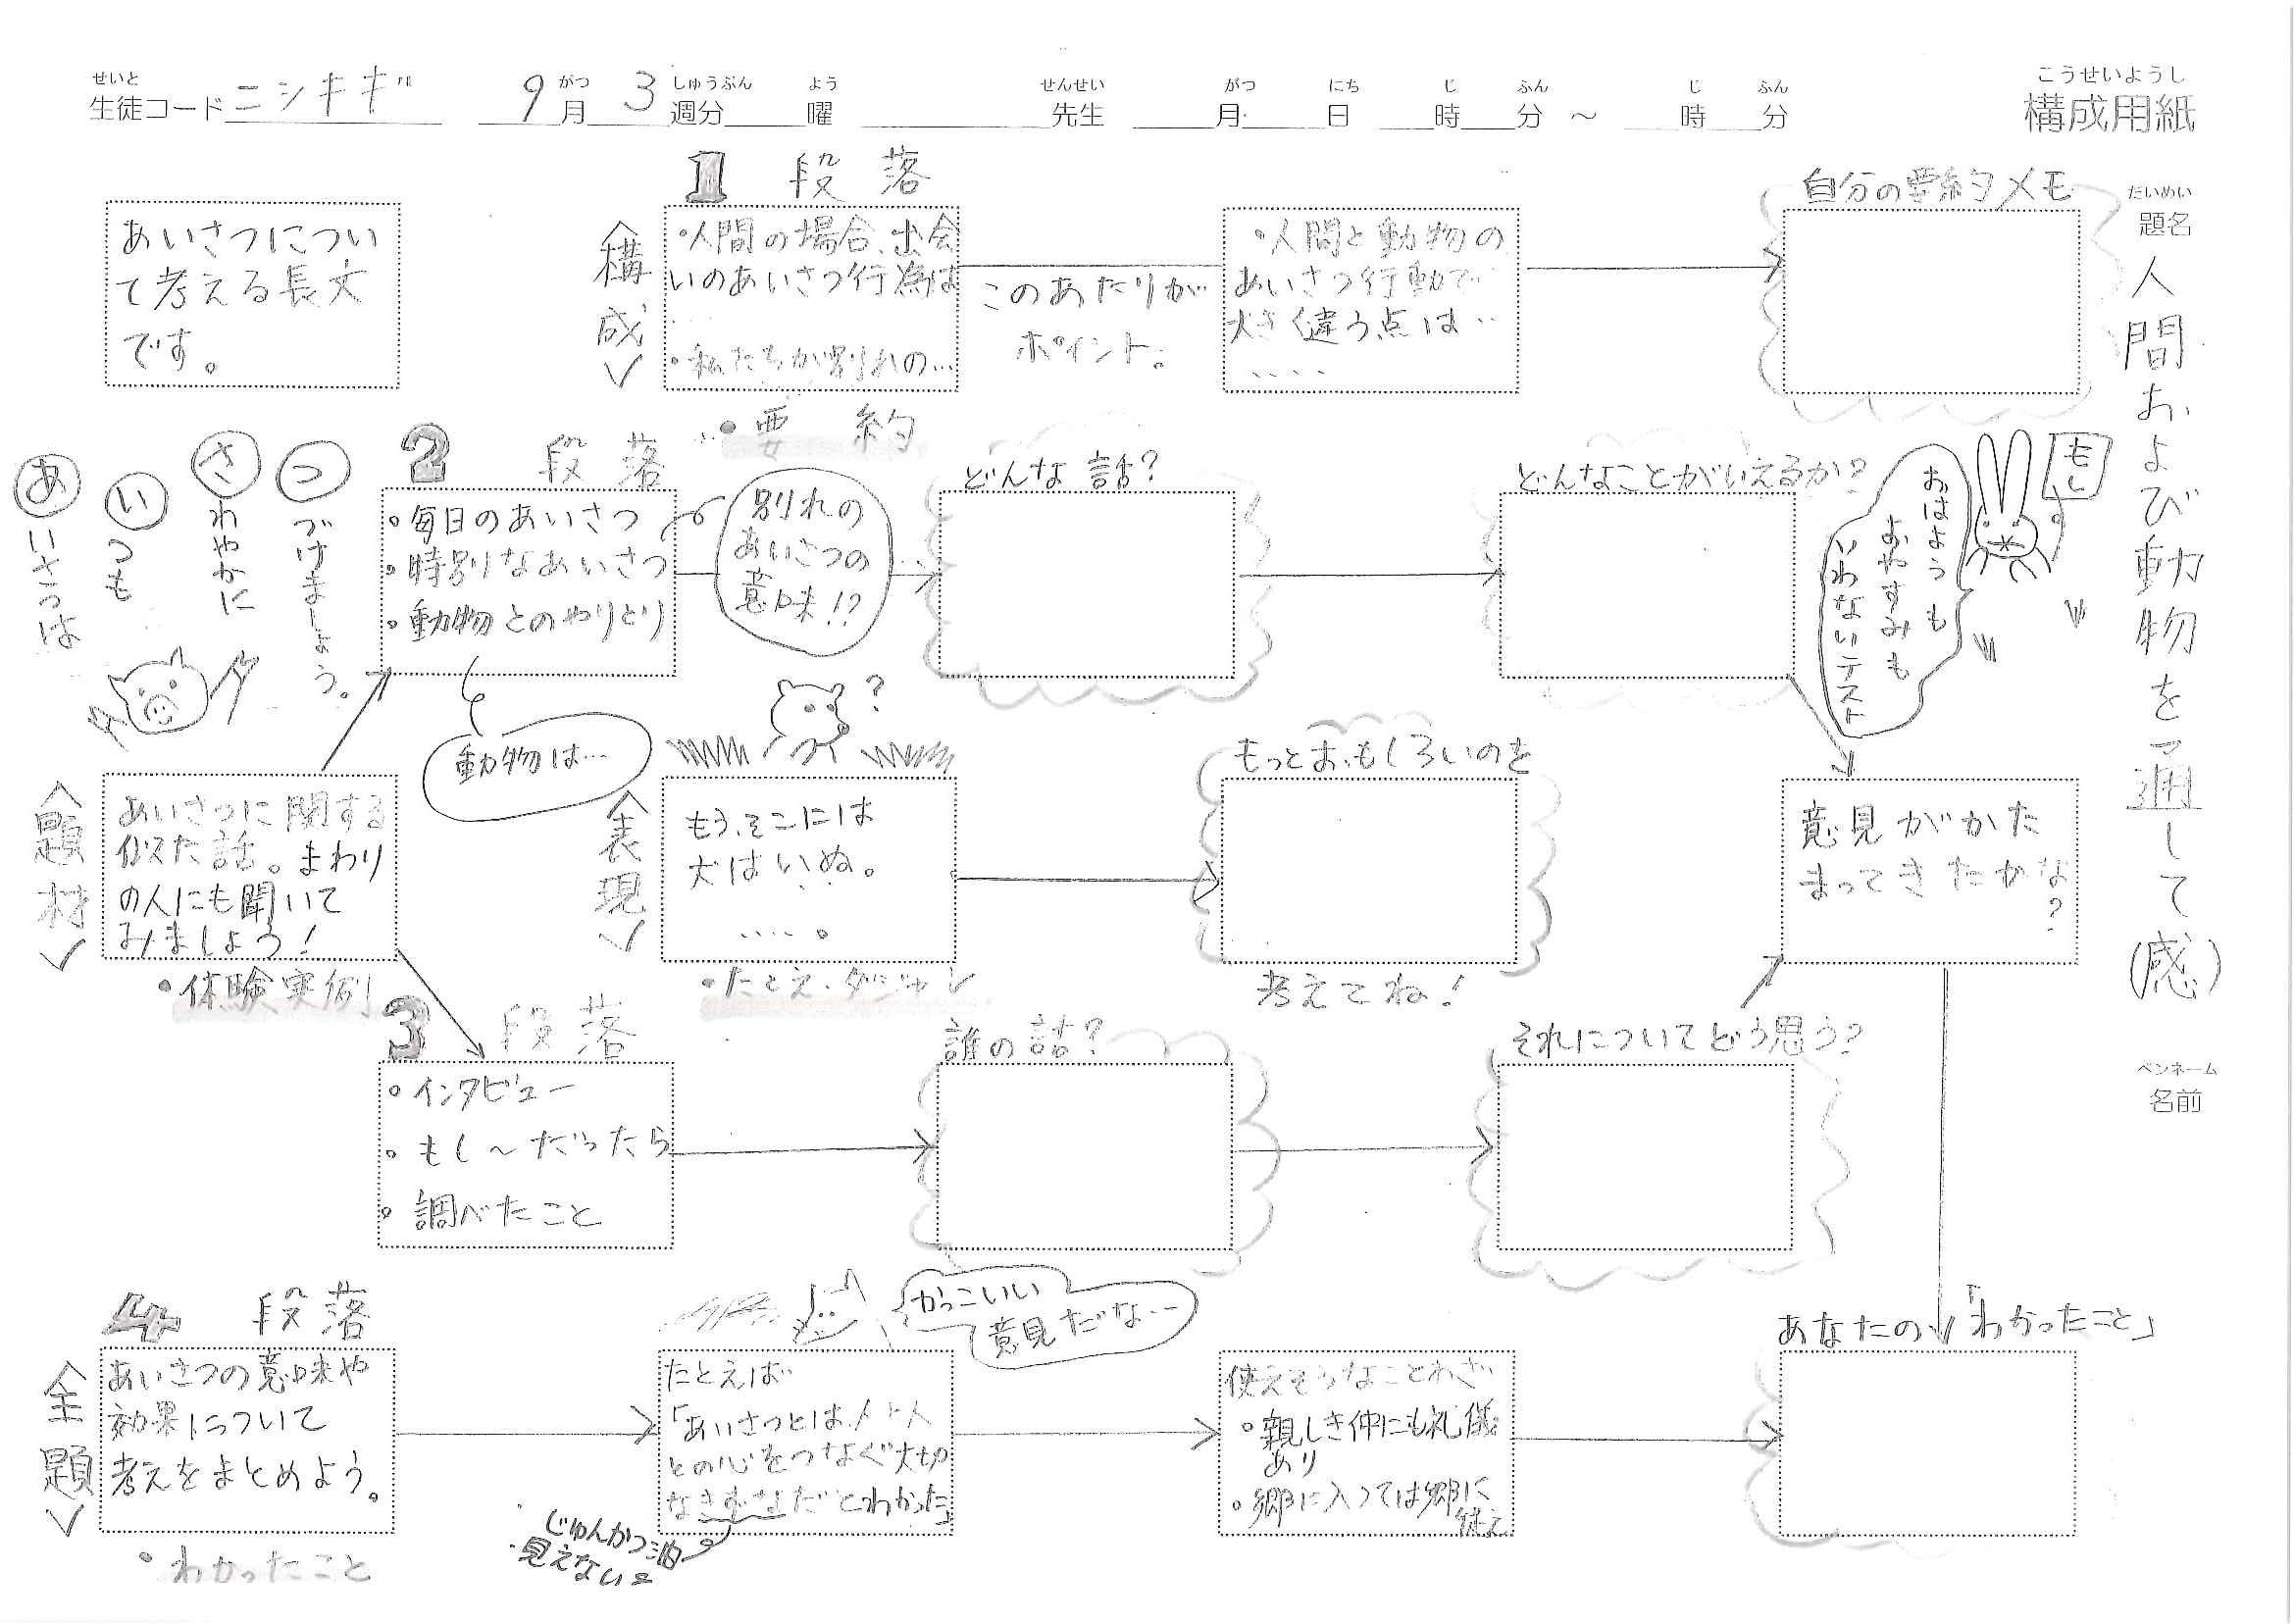 せいと
生徒コード ニシキギ 9月 3週分 曜 先生 月 日 時 分 ～ 時 分
がつ しゅうぶん よう せんせい がつ にち じ ふん じ ふん
こうせいようし
構成用紙
だいめい
題名
人間および動物を通して(感)
ペンネーム
名前
あいさつについ
て考える長文
です。
1 段落
〈構成〉
・人間の場合、出会
いのあいさつ行為は
....
・私たちが別れの…
・要約
このあたりが
ポイント。
・人間と動物の
あいさつ行動で
大きく違う点は‥
....
自分の要約メモ
あいさつは
いつも
さわやかに
つづけましょう。
2 段落
・毎日のあいさつ
・時別なあいさつ
・動物とのやりとり
別れの
あいさつの
意味!?
どんな話?
どんなことがいえるか?
もし
おはようも
おやすみも
いわないテスト
動物は…
〈題材〉
あいさつに関する
似た話。まわり
の人にも聞いて
みましょう!
・体験実例
〈表現〉
?
もう、そこには
犬はいぬ。
....。
・たとえ・ダジャレ
もっとおもしろいのを
考えてね!
意見がかた
まってきたかな?
3 段落
・インタビュー
・もし～だったら
・調べたこと
誰の話?
それについてどう思う?
4 段落
〈全題〉
あいさつの意味や
効果について
考えをまとめよう。
・わかったこと
かっこいい
意見だな…
たとえば
「あいさつとは、人と人
との心をつなぐ大切
なきずなだとわかった」
じゅんかつ油
見えない
使えそうなことわざ
・親しき仲にも礼儀
あり
・郷に入っては郷に
従え
あなたの「わかったこと」